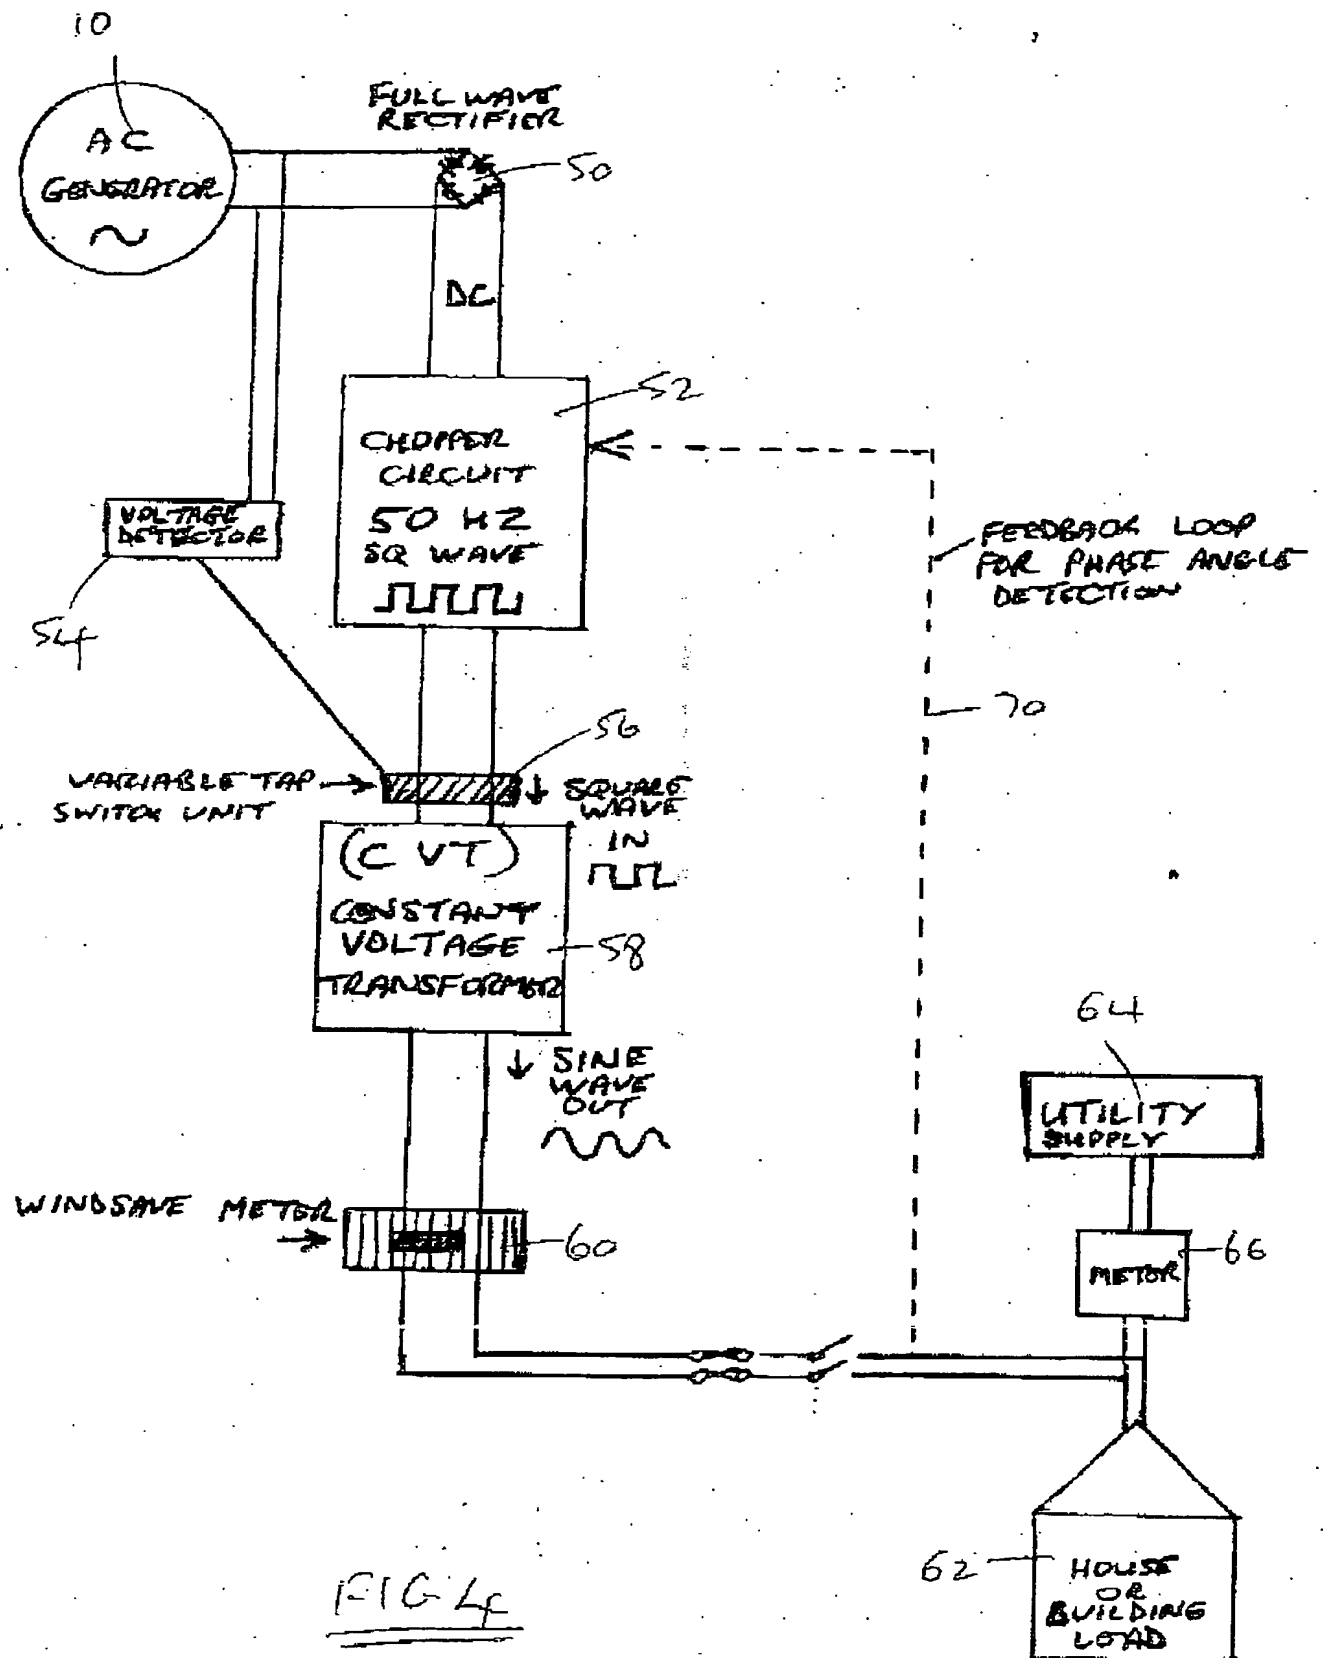 10
AC
GENERATOR
FULL WAVE
RECTIFIER
50
DC
52
CHOPPER
CIRCUIT
50 HZ
SQ WAVE
VOLTAGE
DETECTOR
54
FEEDBACK LOOP
FOR PHASE ANGLE
DETECTION
70
56
VARIABLE TAP
SWITCH UNIT
SQUARE
WAVE
IN
(CVT)
CONSTANT
VOLTAGE
TRANSFORMER
58
SINE
WAVE
OUT
64
UTILITY
SUPPLY
WINDSAVE METER
60
METER
66
62
HOUSE
OR
BUILDING
LOAD
FIG 4